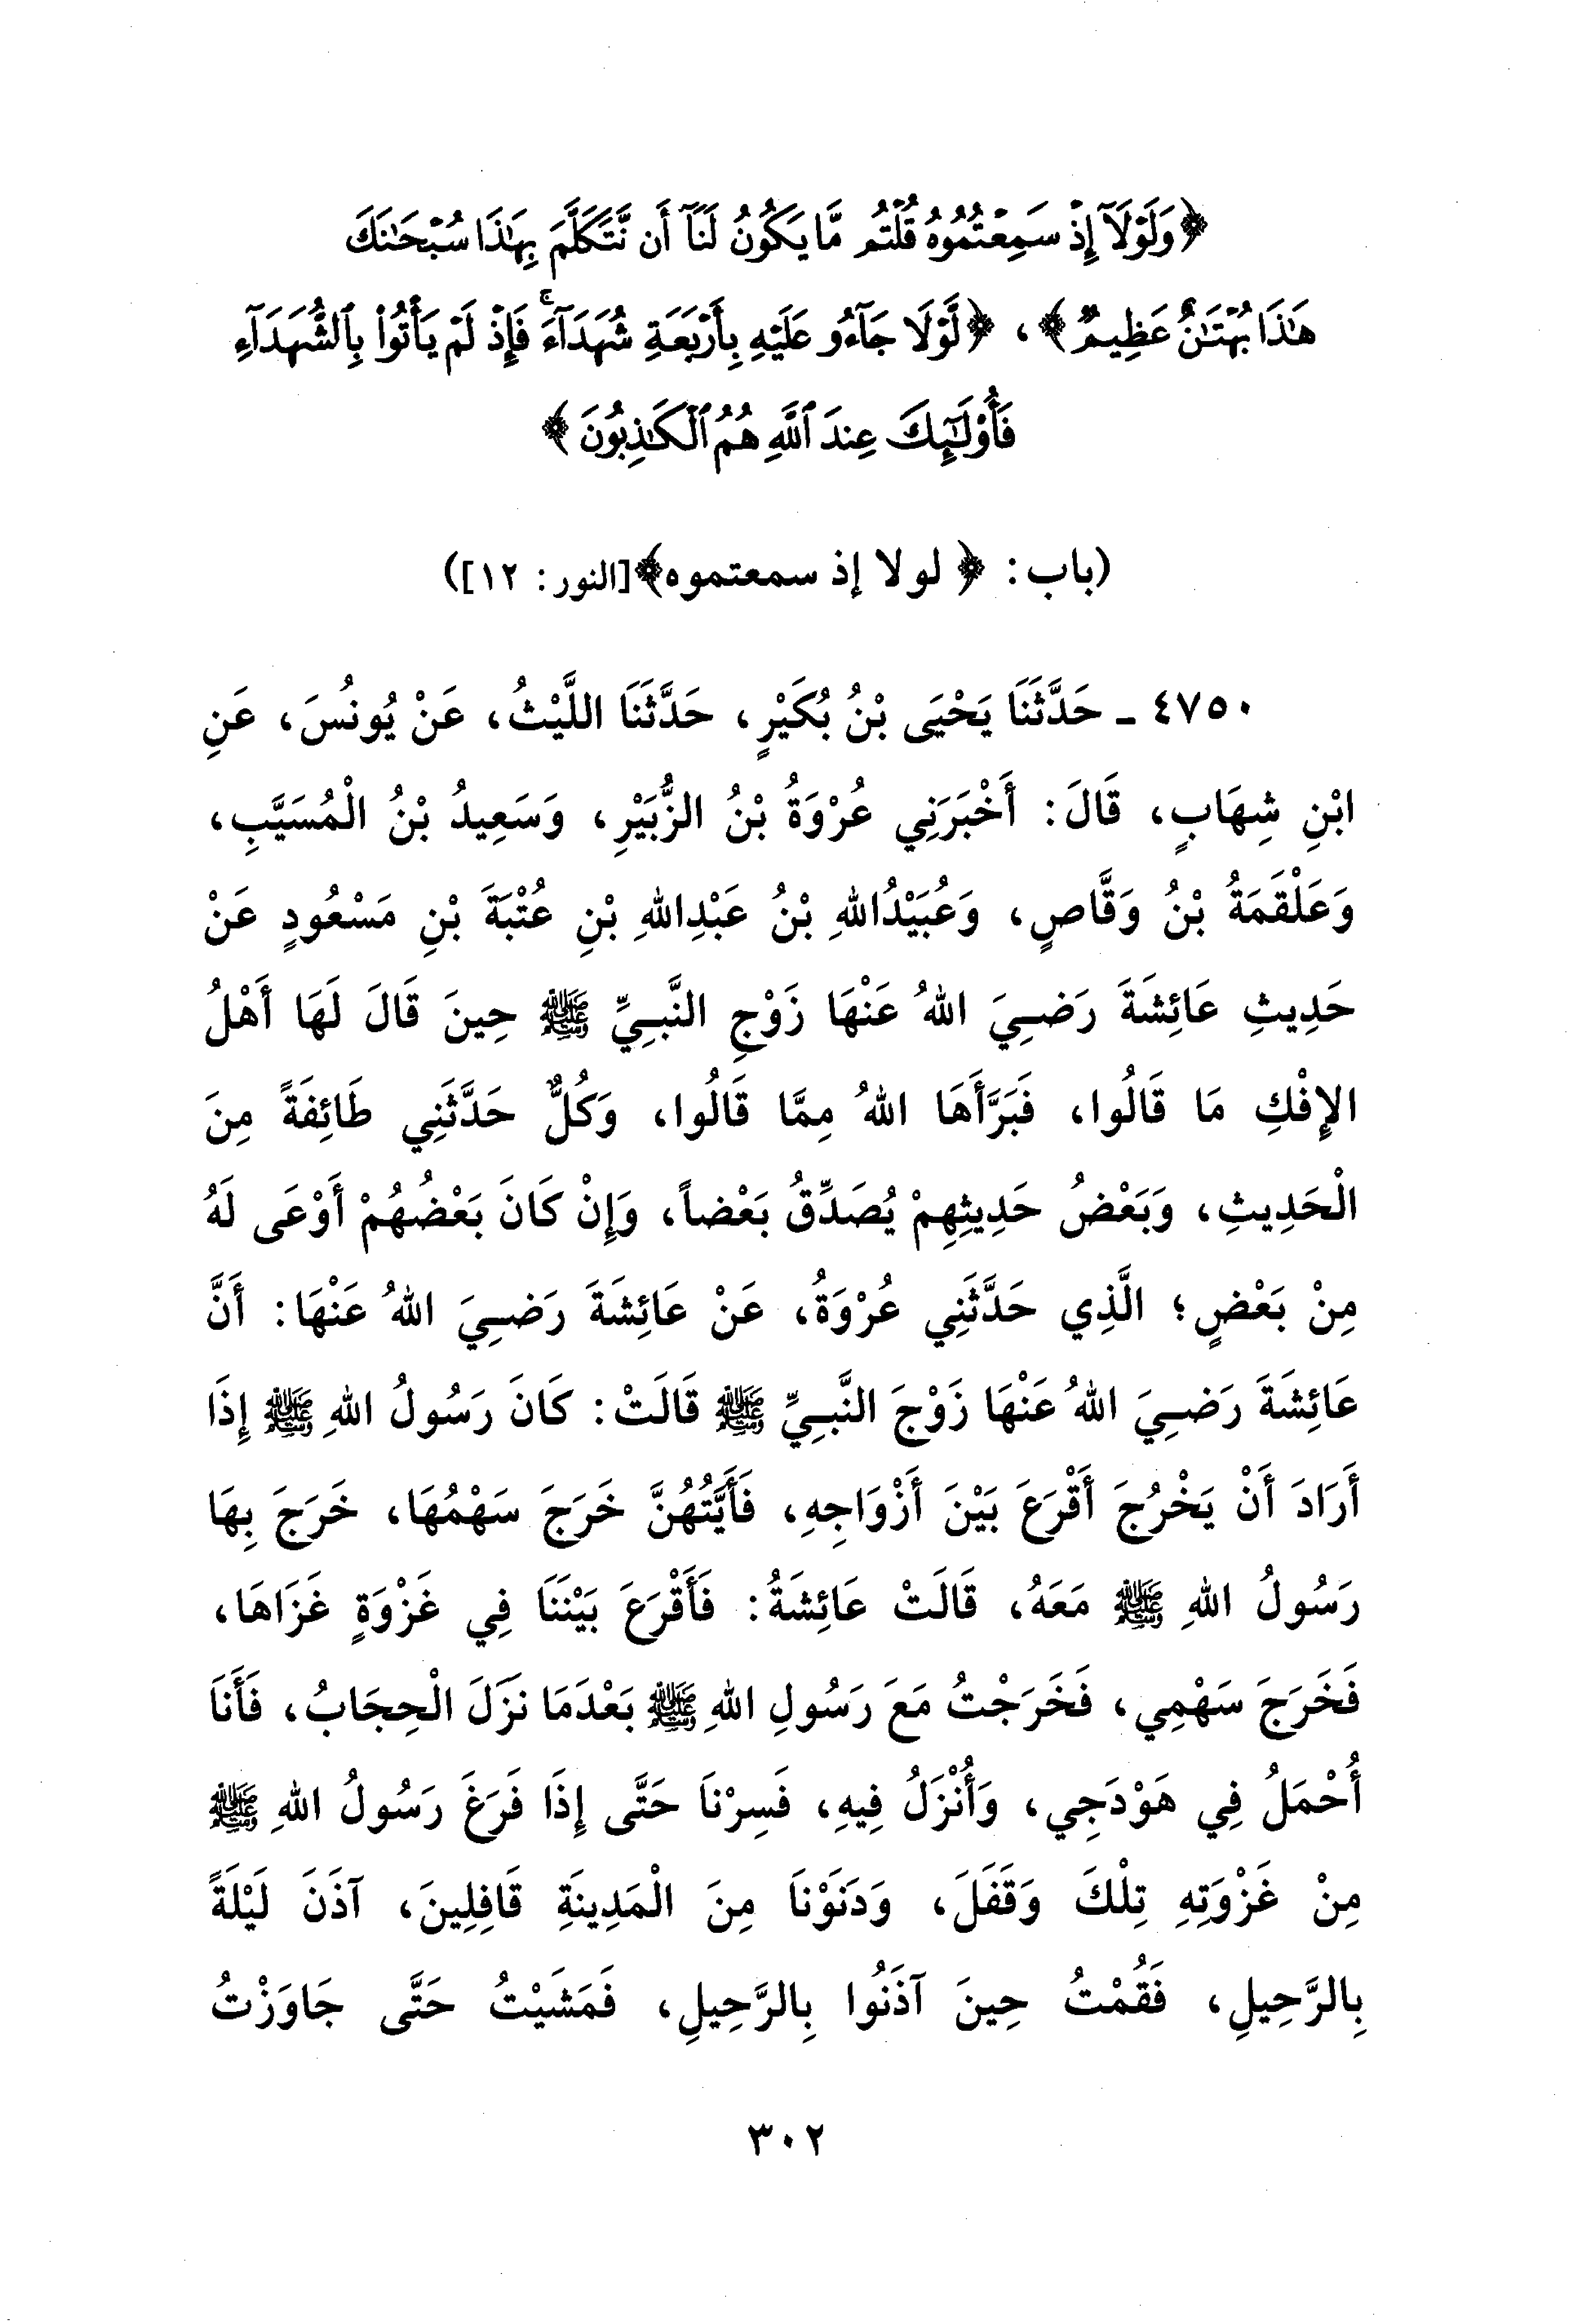 ﴿وَلَوْلَآ إِذْ سَمِعْتُمُوهُ قُلْتُم مَّا يَكُونُ لَنَآ أَن نَّتَكَلَّمَ بِهَٰذَا سُبْحَٰنَكَ
هَٰذَا بُهْتَٰنٌ عَظِيمٌ﴾، ﴿لَّوْلَا جَآءُو عَلَيْهِ بِأَرْبَعَةِ شُهَدَآءَۚ فَإِذْ لَمْ يَأْتُوا۟ بِٱلشُّهَدَآءِ
فَأُو۟لَٰٓئِكَ عِندَ ٱللَّهِ هُمُ ٱلْكَٰذِبُونَ﴾
(باب: ﴿ لولا إذ سمعتموه﴾[النور: ١٢])
٤٧٥٠ ـ حَدَّثَنَا يَحْيَى بْنُ بُكَيْرٍ، حَدَّثَنَا اللَّيْثُ، عَنْ يُونُسَ، عَنِ
ابْنِ شِهَابٍ، قَالَ: أَخْبَرَنِي عُرْوَةُ بْنُ الزُّبَيْرِ، وَسَعِيدُ بْنُ الْمُسَيَّبِ،
وَعَلْقَمَةُ بْنُ وَقَّاصٍ، وَعُبَيْدُاللهِ بْنُ عَبْدِاللهِ بْنِ عُتْبَةَ بْنِ مَسْعُودٍ عَنْ
حَدِيثِ عَائِشَةَ رَضِيَ اللهُ عَنْهَا زَوْجِ النَّبِيِّ ﷺ حِينَ قَالَ لَهَا أَهْلُ
الإِفْكِ مَا قَالُوا، فَبَرَّأَهَا اللهُ مِمَّا قَالُوا، وَكُلٌّ حَدَّثَنِي طَائِفَةً مِنَ
الْحَدِيثِ، وَبَعْضُ حَدِيثِهِمْ يُصَدِّقُ بَعْضاً، وَإِنْ كَانَ بَعْضُهُمْ أَوْعَى لَهُ
مِنْ بَعْضٍ؛ الَّذِي حَدَّثَنِي عُرْوَةُ، عَنْ عَائِشَةَ رَضِيَ اللهُ عَنْهَا: أَنَّ
عَائِشَةَ رَضِيَ اللهُ عَنْهَا زَوْجَ النَّبِيِّ ﷺ قَالَتْ: كَانَ رَسُولُ اللهِ ﷺ إِذَا
أَرَادَ أَنْ يَخْرُجَ أَقْرَعَ بَيْنَ أَزْوَاجِهِ، فَأَيَّتُهُنَّ خَرَجَ سَهْمُهَا، خَرَجَ بِهَا
رَسُولُ اللهِ ﷺ مَعَهُ، قَالَتْ عَائِشَةُ: فَأَقْرَعَ بَيْنَنَا فِي غَزْوَةٍ غَزَاهَا،
فَخَرَجَ سَهْمِي، فَخَرَجْتُ مَعَ رَسُولِ اللهِ ﷺ بَعْدَمَا نَزَلَ الْحِجَابُ، فَأَنَا
أُحْمَلُ فِي هَوْدَجِي، وَأُنْزَلُ فِيهِ، فَسِرْنَا حَتَّى إِذَا فَرَغَ رَسُولُ اللهِ ﷺ
مِنْ غَزْوَتِهِ تِلْكَ وَقَفَلَ، وَدَنَوْنَا مِنَ الْمَدِينَةِ قَافِلِينَ، آذَنَ لَيْلَةً
بِالرَّحِيلِ، فَقُمْتُ حِينَ آذَنُوا بِالرَّحِيلِ، فَمَشَيْتُ حَتَّى جَاوَزْتُ
٣٠٢